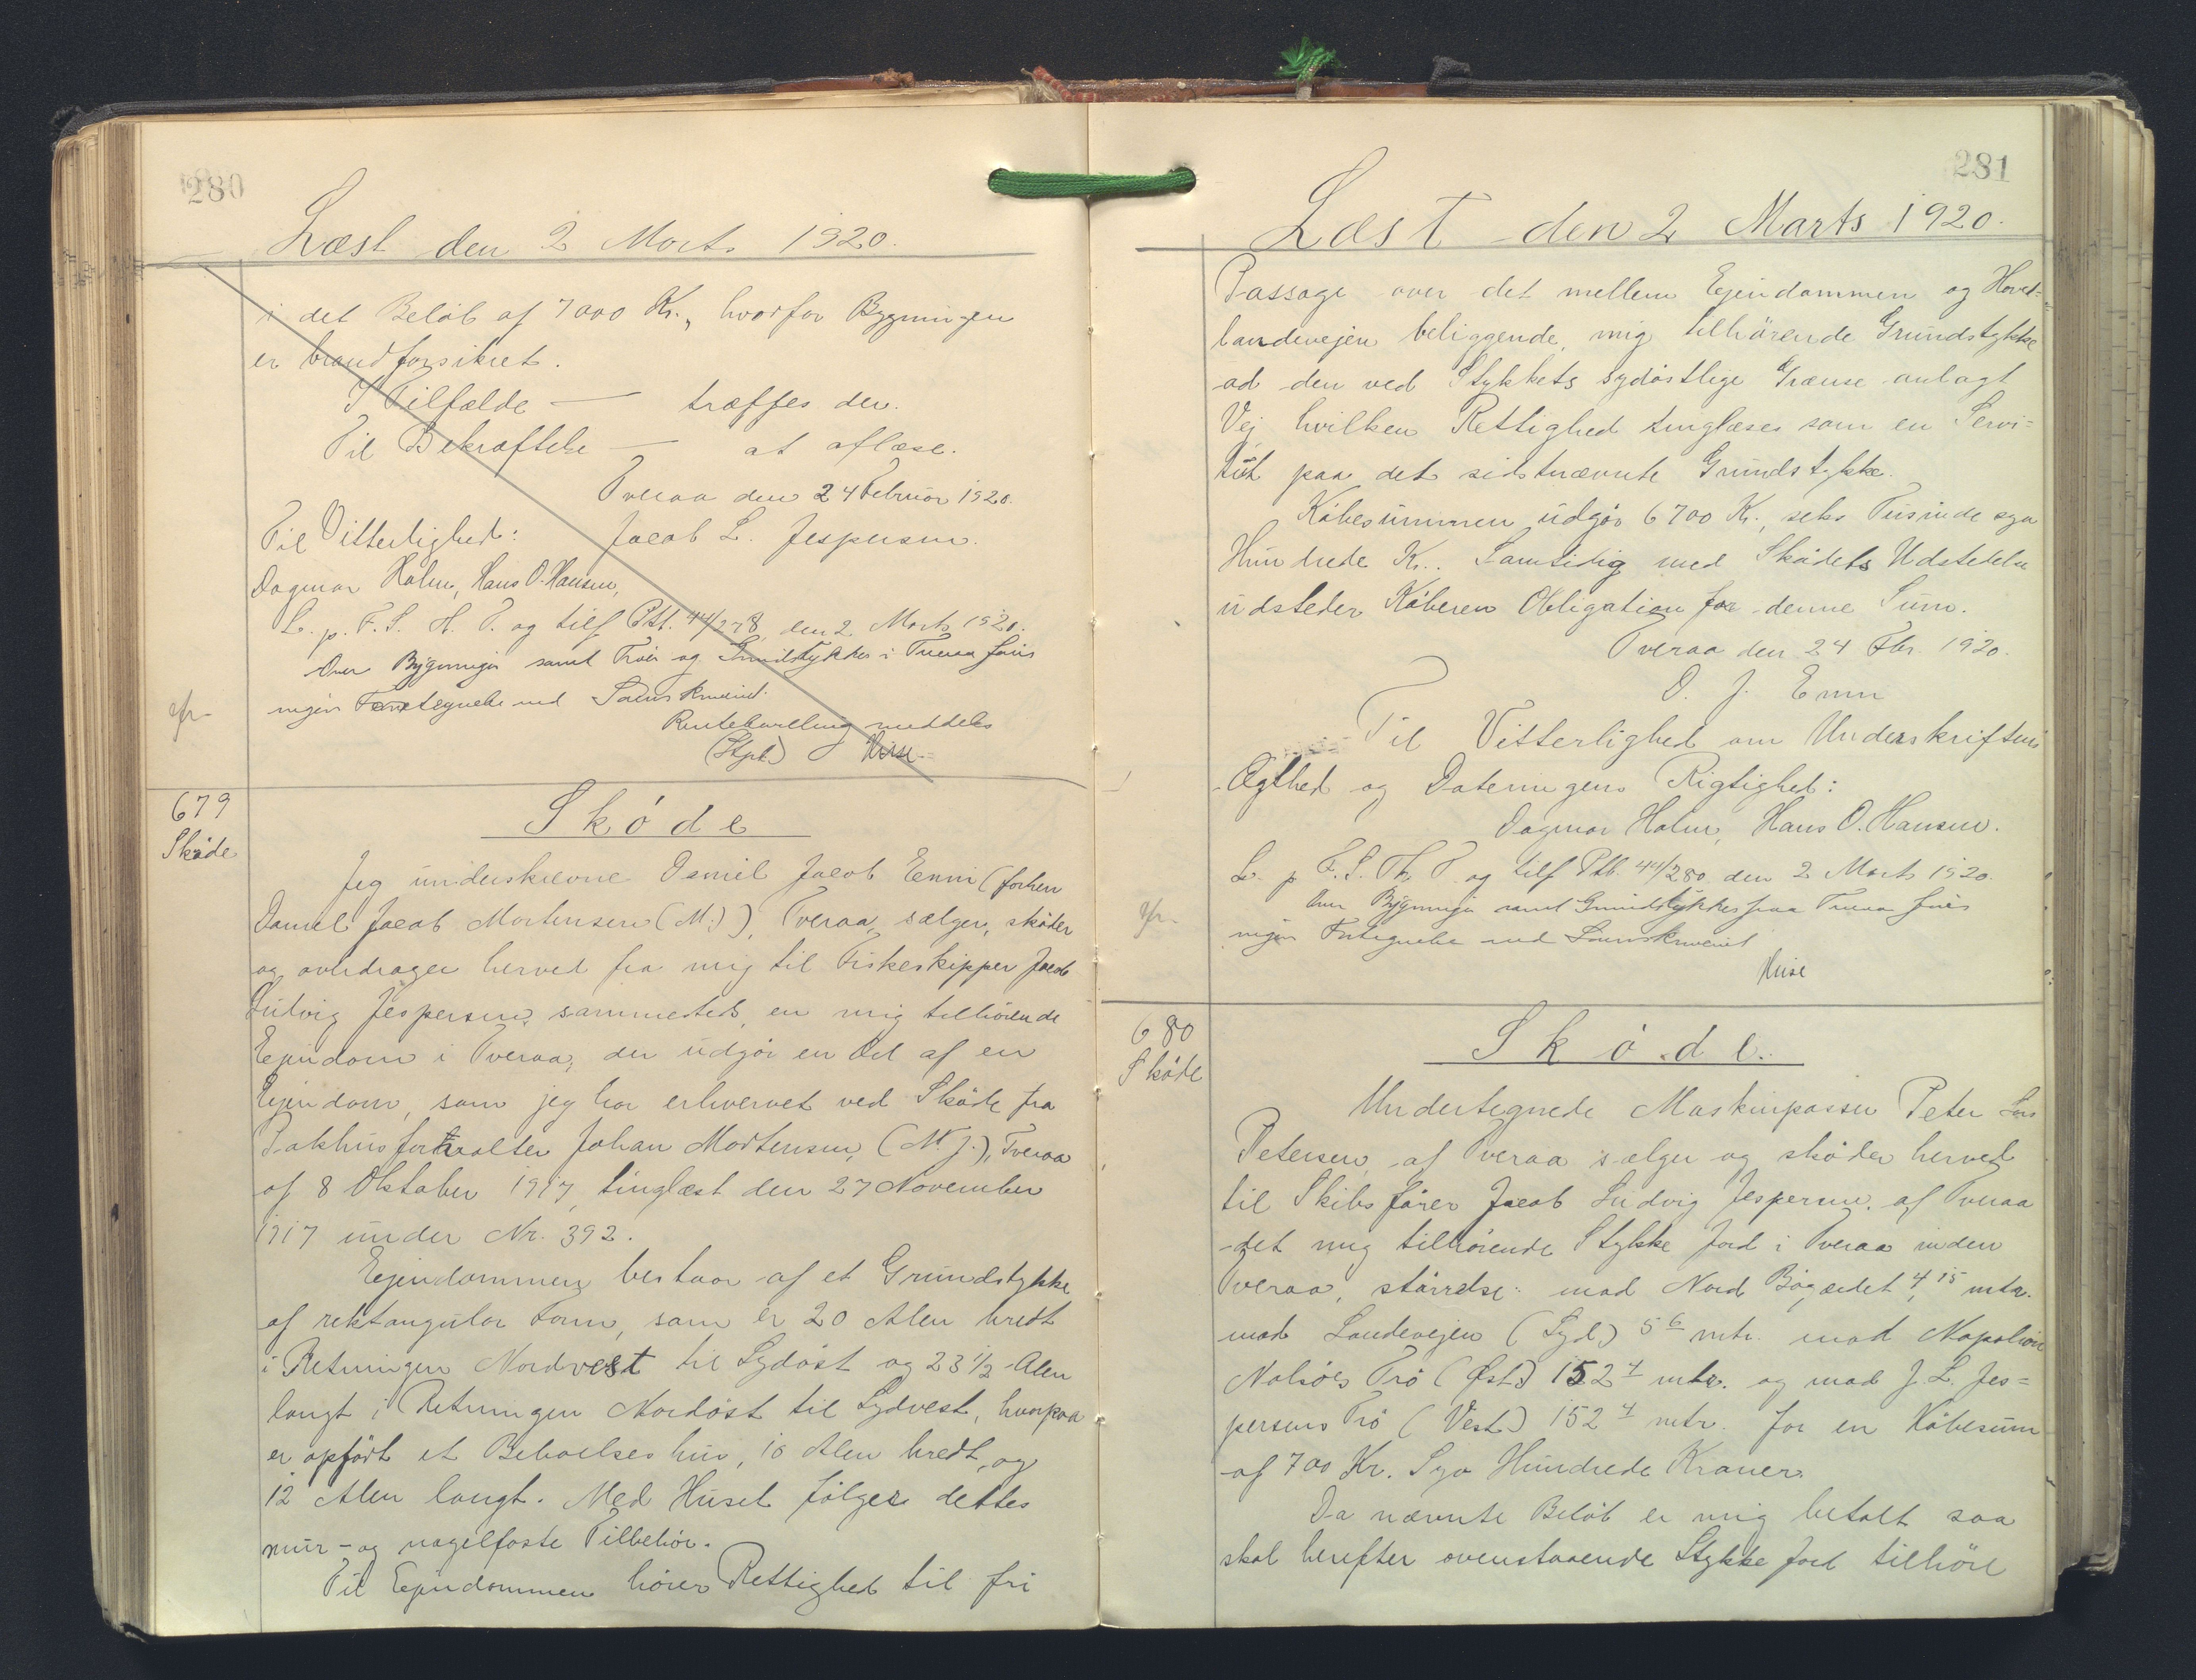 280
Læst den 2 Marts 1920.
i det Beløb af 7000 Kr., hvorfor Bygningen
er brandforsikret.
I Tilfælde — træffes der.
Til Bekræftelse — at aflæse.
Tveraa den 24 Februar 1920.
Til Vitterlighed: Jacob L. Jespersen.
Dagmar Holm, Hans O. Hansen,
L. p. F. S. H. T. og tilf Ptb. 44/278, den 2 Marts 1920.
Over Bygningen samt Trøen og Grundstykket i Tveraa
ingen Fortegnelse ved
meddeles
(Stpl.)
679
Skøde
Skøde
Jeg underskrevne Daniel Jacob Enni (forhen
Daniel Jacob Mortensen (M.)), Tveraa, sælger, skøder
og overdrager herved fra mig til Fiskeskipper Jacob
Ludvig Jespersen, sammesteds, en mig tilhørende
Ejendom i Tveraa, der udgør en Del af en
Ejendom, som jeg har erhvervet ved Skøde fra
Pakhusforvalter Johan Mortensen, (M. J.), Tveraa
af 8 Oktober 1917, tinglæst den 27 November
1917 under Nr. 392.
Ejendommen bestaar af et Grundstykke
af rektangulær Form, som er 20 Alen bredt
i Retningen Nordvest til Sydøst og 23 1/2 Alen
langt i Retningen Nordøst til Sydvest, hvorpaa
er opført et Beboelseshus, 10 Alen bredt, og
12 Alen langt. Med Huset følger dettes
mur- og nagelfaste Tilbehør.
Til Ejendommen hører Rettighed til fri
281
Læst den 2 Marts 1920.
Passage over det mellem Ejendommen og Hoved-
landevejen beliggende, mig tilhørende Grundstykke
ad den ved Stykkets sydøstlige Grænse anlagt
Vej, hvilken Rettighed tinglæses som en Servi-
tut paa det sidstnævnte Grundstykke.
Købesummen udgør 6700 Kr., seks Tusinde syv
Hundrede Kr.. Samtidig med Skødets Udstedelse
udsteder Køberen Obligation for denne Sum.
Tveraa den 24 Fbr. 1920.
D. J. Enni
Til Vitterlighed om Underskriftens
Ægthed og Dateringens Rigtighed:
Dagmar Holm, Hans O. Hansen.
L. p. F. S. Th. T. og tilf Ptb. 44/280 den 2 Marts 1920.
Over Bygningen samt Grundstykket paa Tveraa
ingen Fortegnelse ved
680
Skøde
Skøde.
Undertegnede Maskinpasser Peter
Petersen, af Tveraa sælger og skøder herved
til Skibsfører Jacob Ludvig Jespersen, af Tveraa
det mig tilhørende Stykke Jord i Tveraa inden
Tveraa, størrelse: mod Nord Bøgærdet, 4,15 mtr.
mod Landevejen (Syd) 5 6 mtr. mod Napolion
Nolsøes Trø (Øst) 152 4 mtr. og mod J. L. Jes-
persens Trø (Vest) 152 4 mtr. for en Købesum
af 700 Kr. Syv Hundrede Kroner.
Da nævnte Beløb er mig betalt saa
skal herefter ovenstaaende Stykke Jord tilhøre